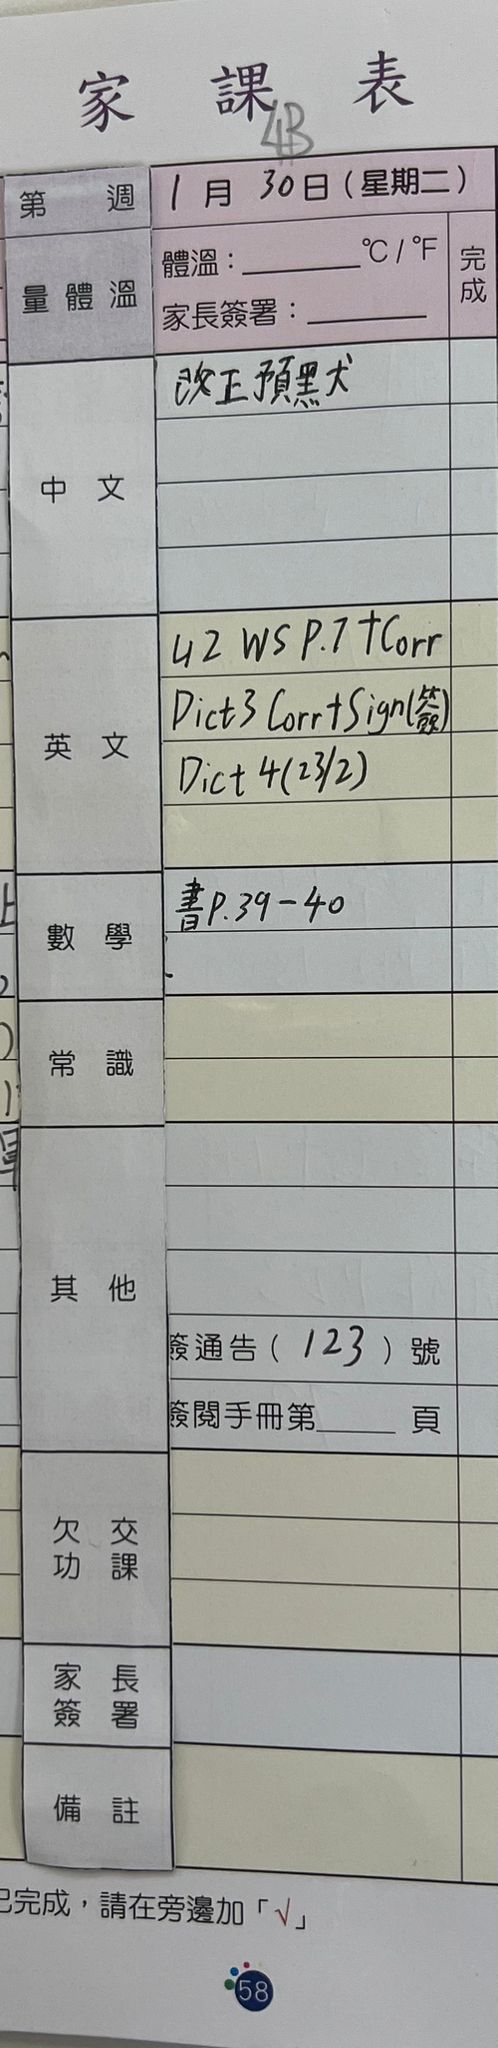 家課表
4B
第 週
1月30日(星期二)
量體溫
體溫:______°C/°F
家長簽署:______
完成
中文
改正預黑犬
英文
U2 WS P.7+Corr
Dict3 Corr+Sign(簽)
Dict 4(23/2)
數學
書P.39-40
常識
其他
簽通告(123)號
簽閱手冊第____頁
欠交功課
家長簽署
備註
已完成,請在旁邊加「√」
58